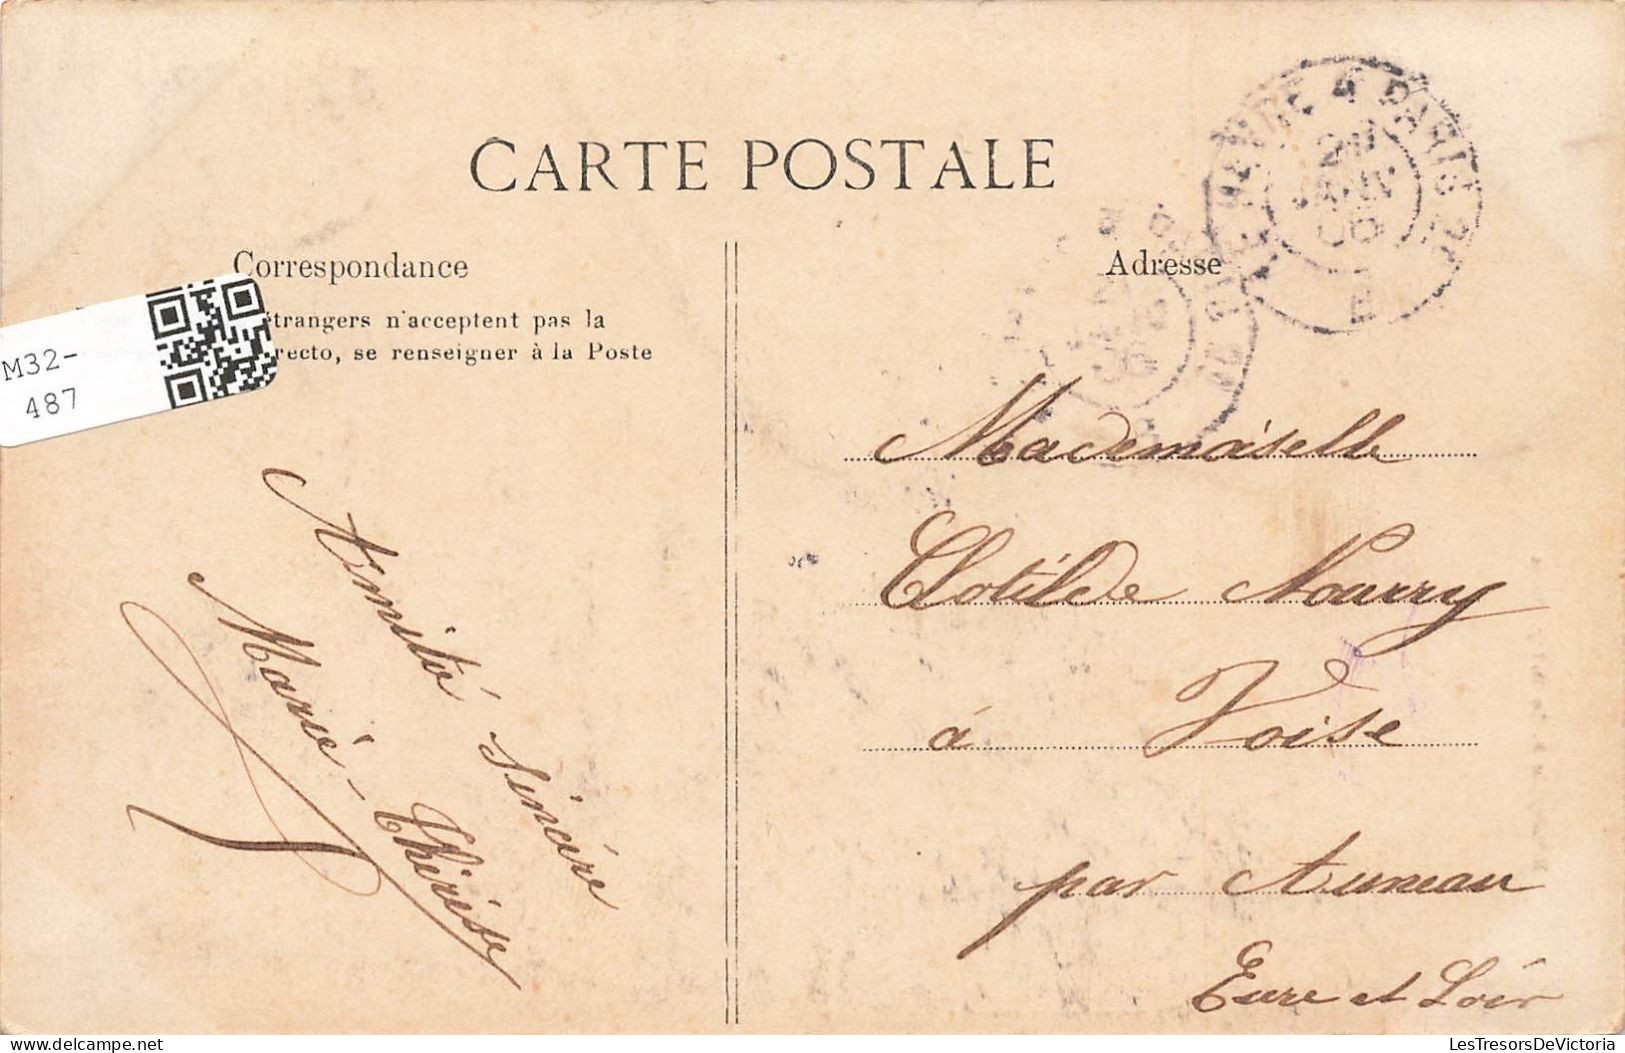 CARTE POSTALE
Correspondance
étrangers n'acceptent pas la
recto, se renseigner à la Poste
M32-
487
Amitié sincère
Marie-Thérèse
Adresse
PARIS
JANV
06
Mademoiselle
Clotilde Nourry
à Voise
par Auneau
Eure et Loir
LesTresorsDeVictoria
delcampe.net